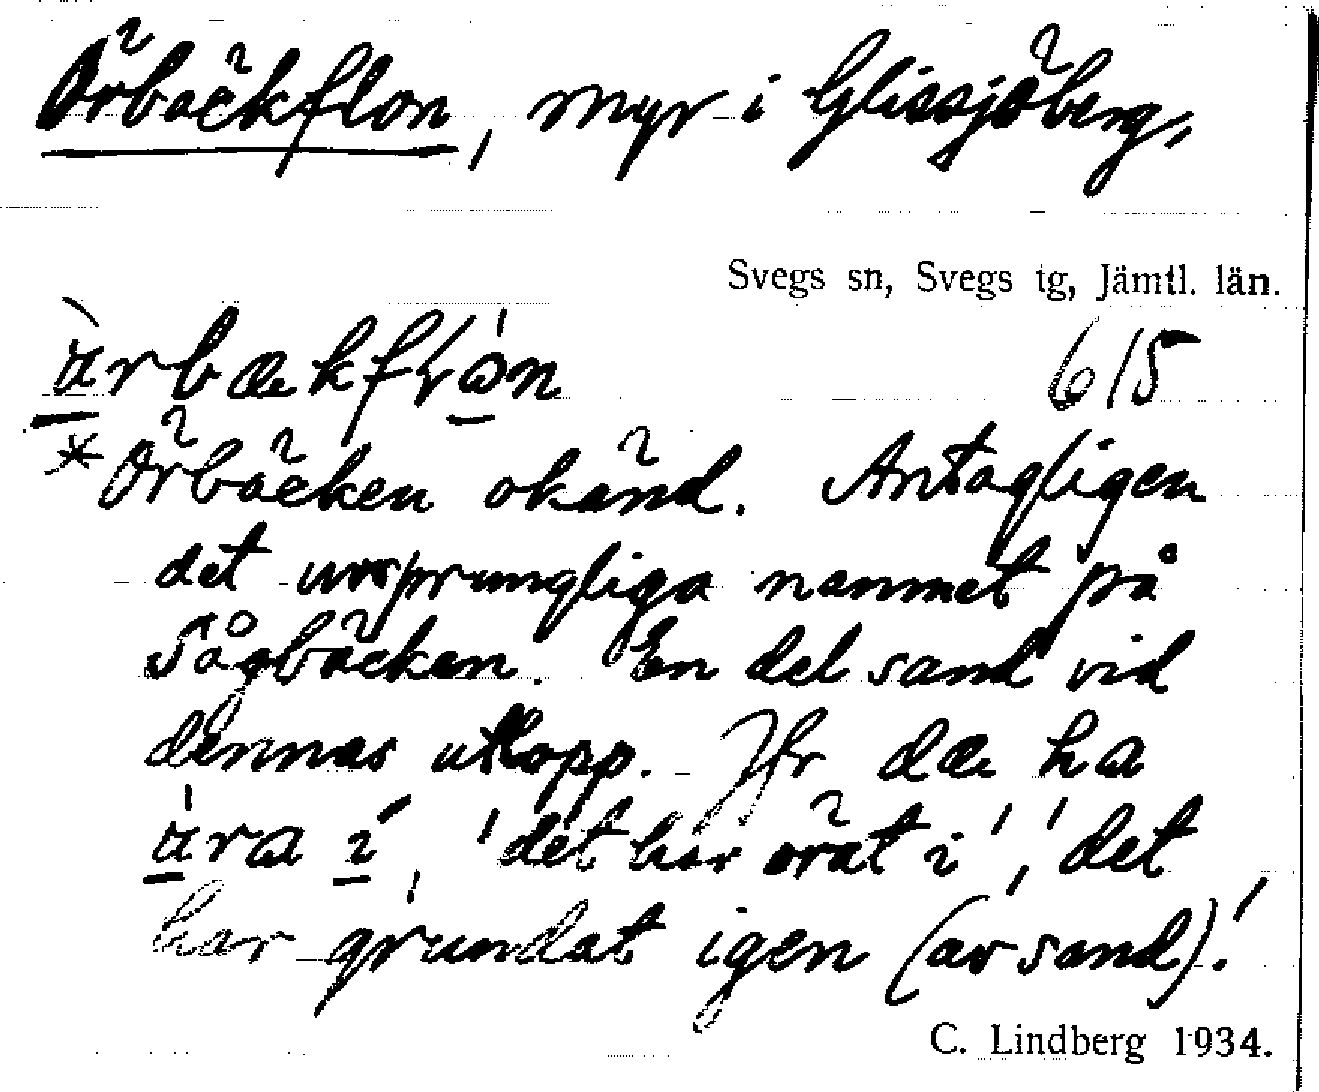 Örbäckflon, myr i Glissjöberg,
Svegs sn, Svegs tg, Jämtl. län.
615
*Örbäcken okänd. Antagligen
det ursprungliga namnet på
Sågbäcken. En del sand vid
dennas utlopp. Jfr dæ ha
ära i, 'det har örat i', 'det
har grundat igen (av sand).'
C. Lindberg 1934.